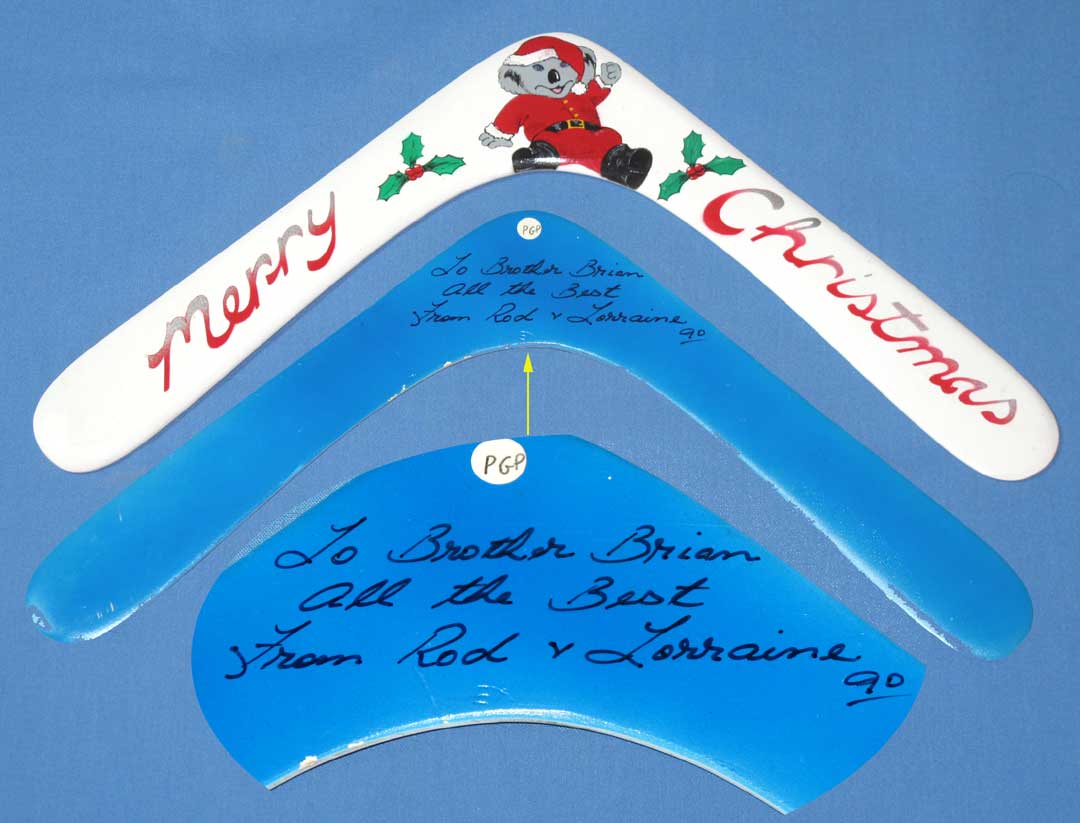 Merry Christmas
PGP
To Brother Brian
All the Best
From Rod & Lorraine
90
PGP
To Brother Brian
All the Best
From Rod & Lorraine
90